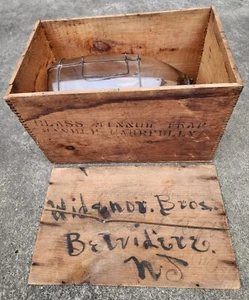 GLASS MINNOW TRAP
HANDLE CAREFULLY
Widenor. Bros.
Belvidere
NJ